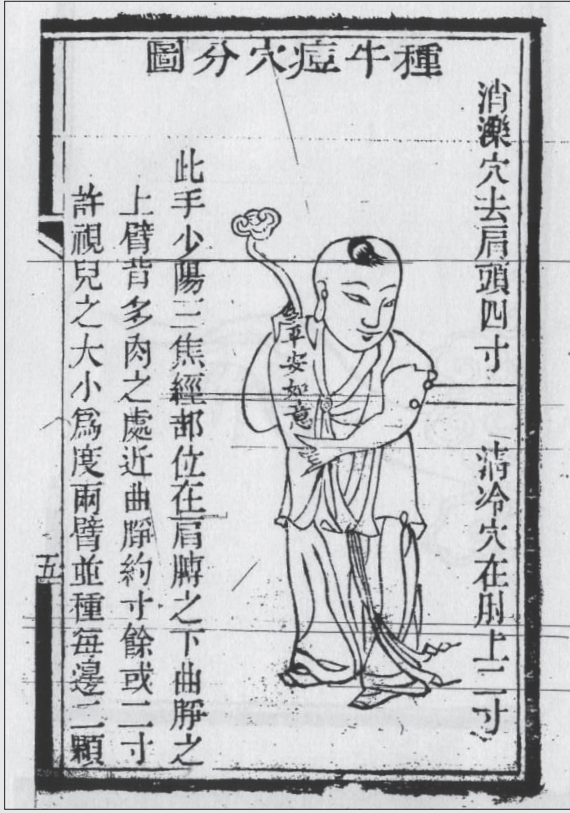 種牛痘穴分圖
消濼穴去肩頭四寸 清冷穴在肘上二寸
平安如意
此手少陽三焦經部位在肩膊之下曲之
上臂背多肉之處近曲約寸餘或二寸
許視兒之大小爲度兩臂並種每邊二顆
五